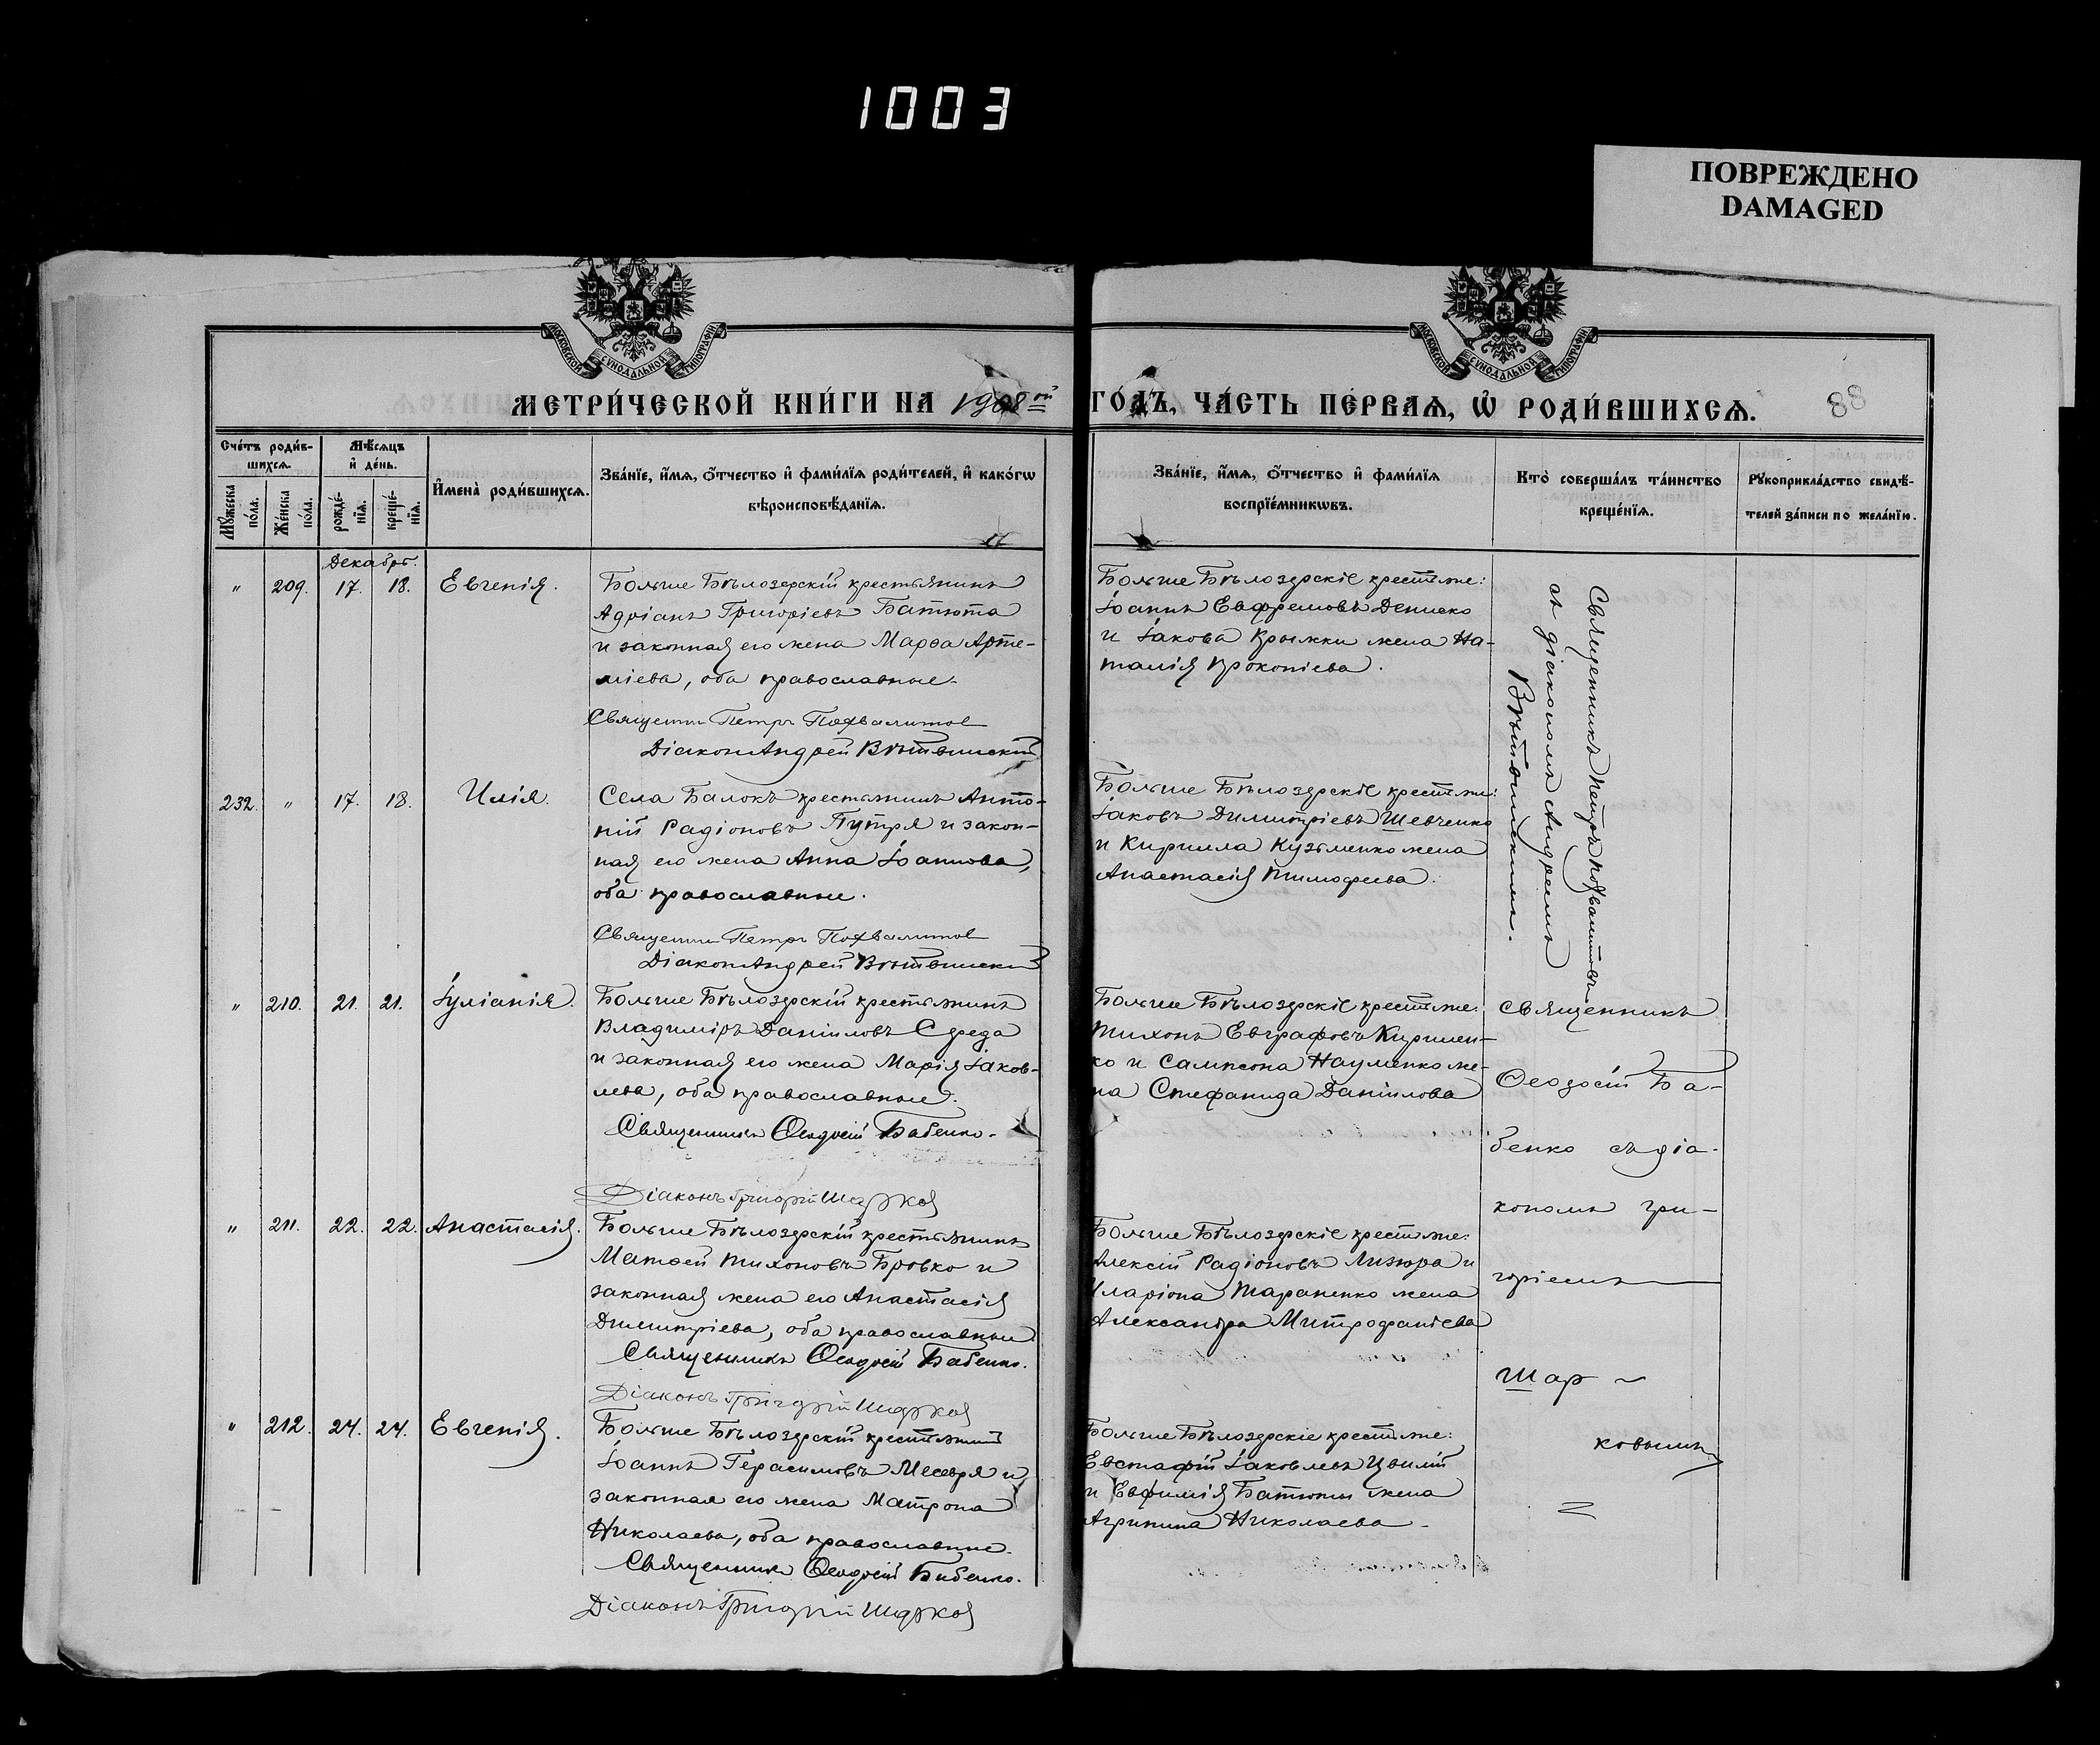 1003
ПОВРЕЖДЕНО
DAMAGED
МОСКОВСКОЙ СѴНОДАЛЬНОЙ ТИПОГРАФІИ
МОСКОВСКОЙ СѴНОДАЛЬНОЙ ТИПОГРАФІИ
МЕТРИ́ЧЕСКОЙ КНИ́ГИ НА 1908ой ГО́ДЪ, ЧА́СТЬ ПЕ́РВАѦ, Ѡ РОДИ́ВШИХСѦ.
88
Сче́тъ роди́в-
шихсѧ.
Мѣ́сѧцъ
и҆ де́нь.
Мꙋ́жеска по́ла.
Же́нска по́ла.
рожде́-нїѧ.
креще́-нїѧ.
И҆мена̀ роди́вшихсѧ.
Зва́нїе, и҆́мѧ, ѻ҆́тчество и҆ фами́лїѧ роди́телей, и҆ како́гѡ
вѣроисповѣ́данїѧ.
Зва́нїе, и҆́мѧ, ѻ҆́тчество и҆ фами́лїѧ
воспрїе́мникѡвъ.
Кто̀ соверша́лъ та́инство
креще́нїѧ.
Рꙋкоприкла́дство свидѣ́-
телей за́писи по жела́нїю.
Декабрь.
" 209. 17. 18. Евгенія.
Больше Бѣлозерскій крестьянинъ
Адріанъ Григоріевъ Батюта
и законная его жена Марѳа Арте-
міева, оба православные.
Священни Петръ Похвалитов
Діаконъ Андрей Вѣтвинскій
Больше Бѣлозерскіе крестьяне:
Іоаннъ Евфремовъ Дениско
и Іакова Крыжки жена На-
талія Прокопіева.
Священникъ Петръ Похвалитовъ
съ діакономъ Андреемъ
Вѣтвинскимъ.
232. " 17. 18. Илія.
Села Балокъ крестьянинъ Анто-
ній Радіоновъ Путря и закон-
ная его жена Анна Іоаннова,
оба православные.
Священни Петръ Похвалитов
Діаконъ Андрей Вѣтвинскій
Больше Бѣлозерскіе крестьяне:
Іаковъ Димитріевъ Шевченко
и Кирилла Кузьменко жена
Анастасія Тимофеева.
" 210. 21. 21. Іуліанія.
Больше Бѣлозерскій крестьянинъ
Владиміръ Даніиловъ Середа
и законная его жена Марія Іаков-
лева, оба православные.
Священникъ Ѳеодосій Бабенко.
Діаконъ Григорій Шарков
Больше Бѣлозерскіе крестьяне:
Тихонъ Евграфовъ Кирилен-
ко и Сампсона Науменко же-
на Стефанида Даніилова
Священникъ
Ѳеодосій Ба-
бенко съ діа-
кономъ Гри-
горіемъ
Шар
ковымъ
" 211. 22. 22. Анастасія.
Больше Бѣлозерскій крестьянинъ
Матѳей Тихоновъ Бровко и
законная жена его Анастасія
Димитріева, оба православные
Священникъ Ѳеодосій Бабенко.
Діаконъ Григорій Шарков
Больше Бѣлозерскіе крестьяне:
Алексій Радіоновъ Лизюра и
Иларіона Тараненко жена
Александра Митрофаніева
" 212. 24. 24. Евгенія.
Больше Бѣлозерскій крестьянинъ
Іоаннъ Герасимовъ Месевря и
законная его жена Матрона
Николаева, оба православные.
Священникъ Ѳеодосій Бабенко.
Діаконъ Григорій Шарков
Больше Бѣлозерскіе крестьяне:
Евстафій Іаковлевъ Цвилій
и Евфимія Батюты жена
Агрипина Николаева